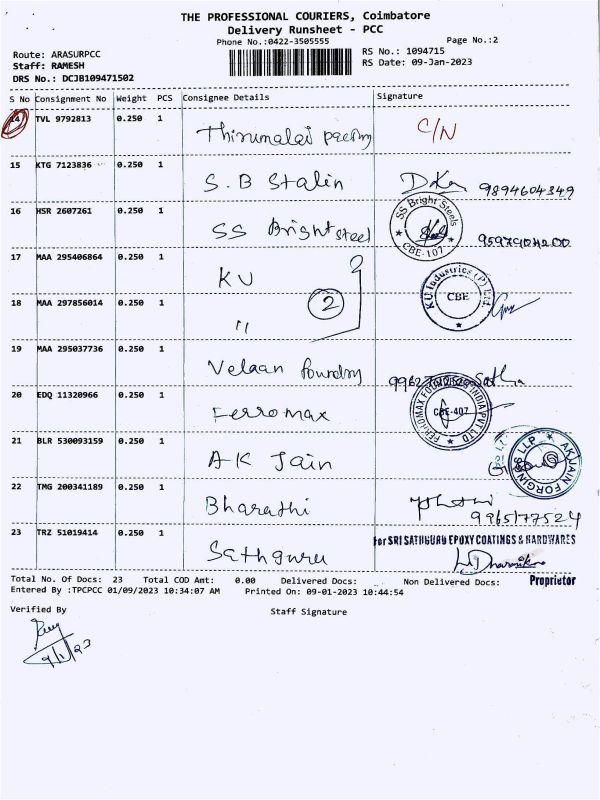 THE PROFESSIONAL COURIERS, Coimbatore
Delivery Runsheet - PCC
Phone No.:0422-3505555
Page No.:2
Route: ARASURPCC
RS No.: 1094715
Staff: RAMESH
RS Date: 09-Jan-2023
DRS No.: DCJB109471502
S No Consignment No Weight PCS Consignee Details Signature
14 TVL 9792813 0.250 1
Thirumalai packing C/N
15 KTG 7123836 0.250 1
S.B Stalin 9894604349
16 HSR 2607261 0.250 1
SS Bright steel SS Bright Steels CBE-107
17 MAA 295406864 0.250 1
KU KU Industries (P) Ltd. CBE
2
18 MAA 297856014 0.250 1
"
19 MAA 295037736 0.250 1
Velaan foundry
20 EDQ 11320966 0.250 1
Ferromax CBE-407
21 BLR 530093159 0.250 1
A K Jain AK JAIN FORGINGS LLP
22 TMG 200341189 0.250 1
Bharathi 9965177524
23 TRZ 51019414 0.250 1
Sathguru for SRI SATHGURU EPOXY COATINGS & HARDWARES
Proprietor
Total No. Of Docs: 23 Total COD Amt: 0.00 Delivered Docs: Non Delivered Docs:
Entered By :TPCPCC 01/09/2023 10:34:07 AM Printed On: 09-01-2023 10:44:54
Verified By Staff Signature
9/1/23